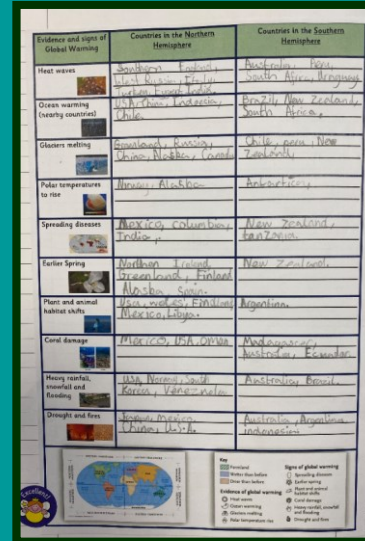 Evidence and signs of Global Warming
Countries in the Northern Hemisphere
Countries in the Southern Hemisphere
Heat waves
Southern England,
West Russia, Italy,
Turkey, Europe, India,
Australia, Peru,
South Africa, Uruguay
Ocean warming
(nearby countries)
USA, China, Indonesia,
Chile.
Brazil, New Zealand,
South Africa,
Glaciers melting
Greenland, Russia,
China, Alaska, Canada
Chile, peru, New
Zealand,
Polar temperatures
to rise
Norway, Alaska
Antarctica,
Spreading diseases
Mexico, columbia,
India,
New Zealand,
tanzania.
Earlier Spring
Northern Ireland
Greenland, Finland
Alaska, Spain.
New Zealand.
Plant and animal
habitat shifts
Usa, wales, Findland
Mexico, Libya.
Argentina.
Coral damage
Mexico, USA, Oman
Madagascar,
Australia, Ecuador
Heavy rainfall,
snowfall and
flooding
USA, Norway, South
Korea, Venezuela
Australia, Brazil
Drought and fires
Mexico,
China, U.S.A.
Australia, Argentina
indonesia
Excellent!
Key
Farmland
Better than before
Drier than before
Evidence of global warming
Heat waves
Ocean warming
Glaciers melting
Polar temperature rise
Signs of global warming
Spreading diseases
Earlier spring
Plant and animal habitat shifts
Coral damage
Heavy rainfall, snowfall and flooding
Drought and fires